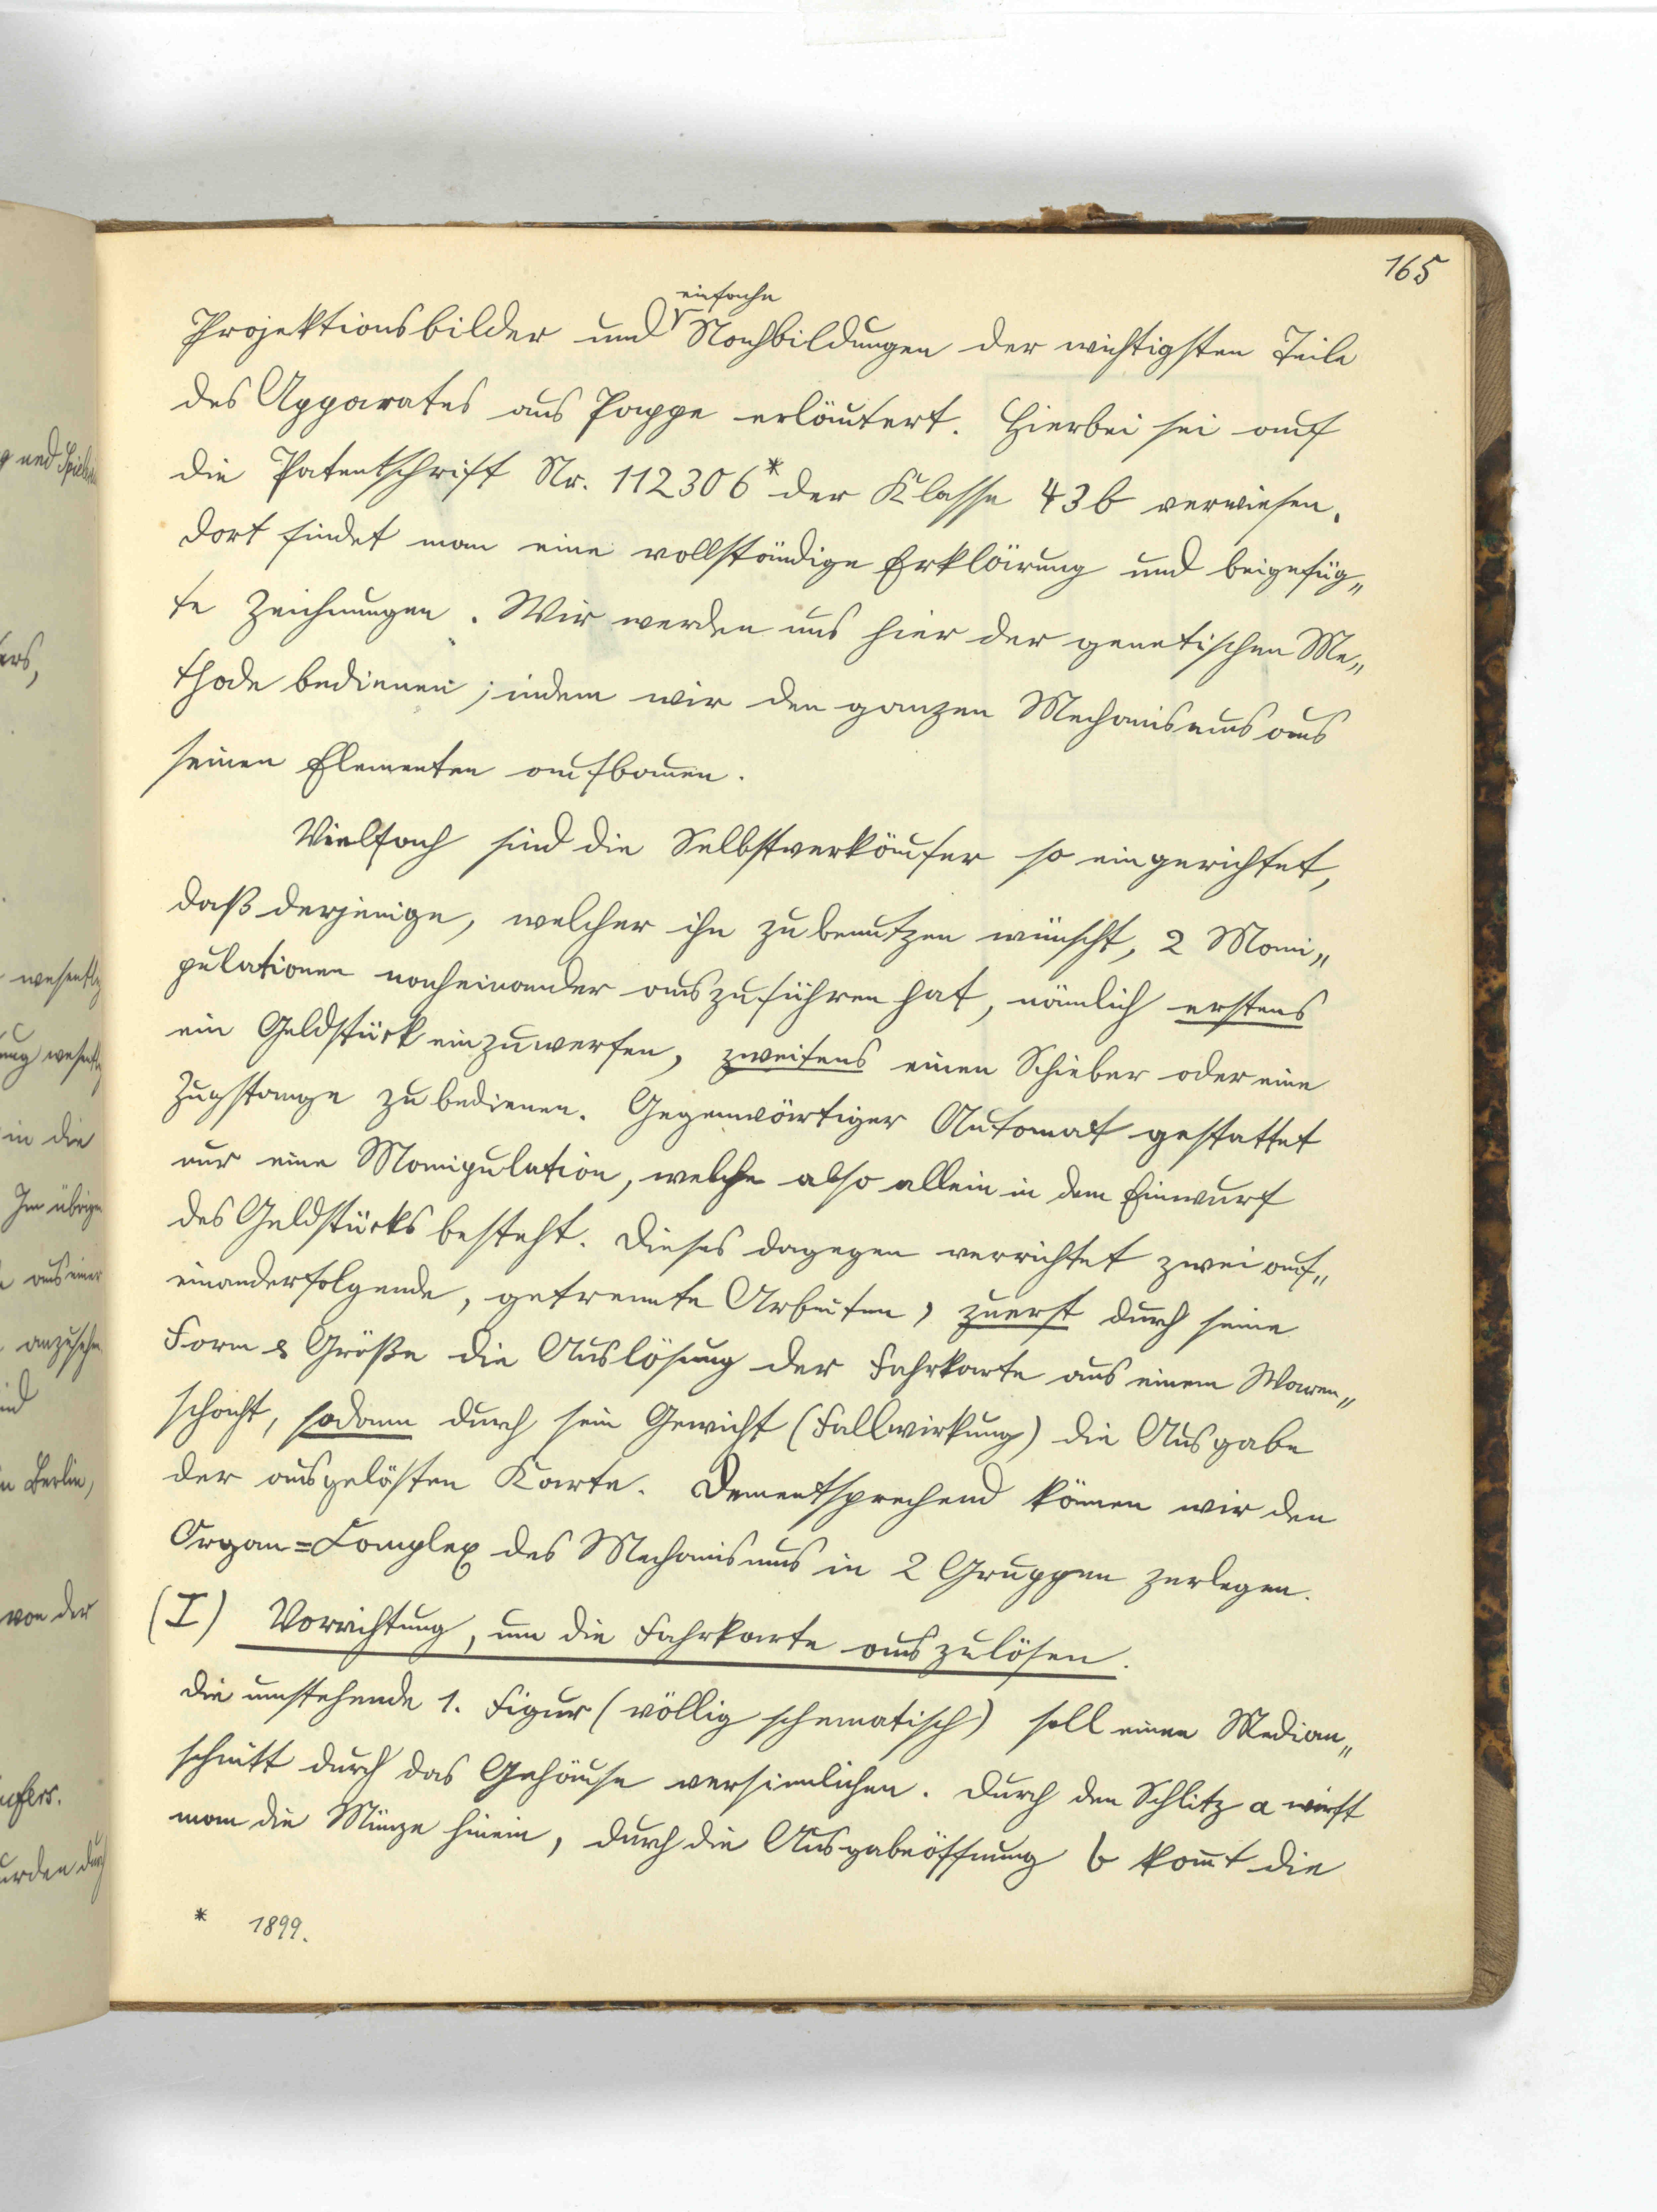 165
einfache
Projektionsbilder und Nachbildungen der wichtigsten Teile
des Apparates aus Pappe erläutert. Hierbei sei auf
die Patentschrift Nr. 112306* der Klasse 43b verwiesen.
Dort findet man eine vollständige Erklärung und beigefüg„
te Zeichnungen. Wir werden uns hier der genetischen Me„
thode bedienen; indem wir den ganzen Mechanismus aus
seinen Elementen aufbauen.
Vielfach sind die Selbstverkäufer so eingerichtet,
daß derjenige, welcher ihn zu benutzen wünscht, 2 Mani„
pulationen nacheinander auszuführen hat, nämlich erstens
ein Geldstück einzuwerfen, zweitens einen Schieber oder eine
Zugstange zu bedienen. Gegenwärtiger Automat gestattet
nur eine Manipulation, welche also allein in dem Einwurf
des Geldstücks besteht. Dieses dagegen verrichtet zwei auf„
einanderfolgende, getrennte Arbeiten, zuerst durch seine
Form & Größe die Auslösung der Fahrkarte aus einem Waren„
schacht, sodann durch sein Gewicht (Fallwirkung) die Ausgabe
der ausgelösten Karte. Dementsprechend können wir den
Organ=Complex des Mechanismus in 2 Gruppen zerlegen.
(I) Vorrichtung, um die Fahrkarte auszulösen.
Die umstehende 1. Figur (völlig schematisch) soll einen Median„
schnitt durch das Gehäuse versinnlichen. Durch den Schlitz a wirft
man die Münze hinein, durch die Ausgabeöffnung b kom̄t die
* 1899.
und
wesentl
in die
Im übrigen
aus einer
anzusehen
Berlin,
von der